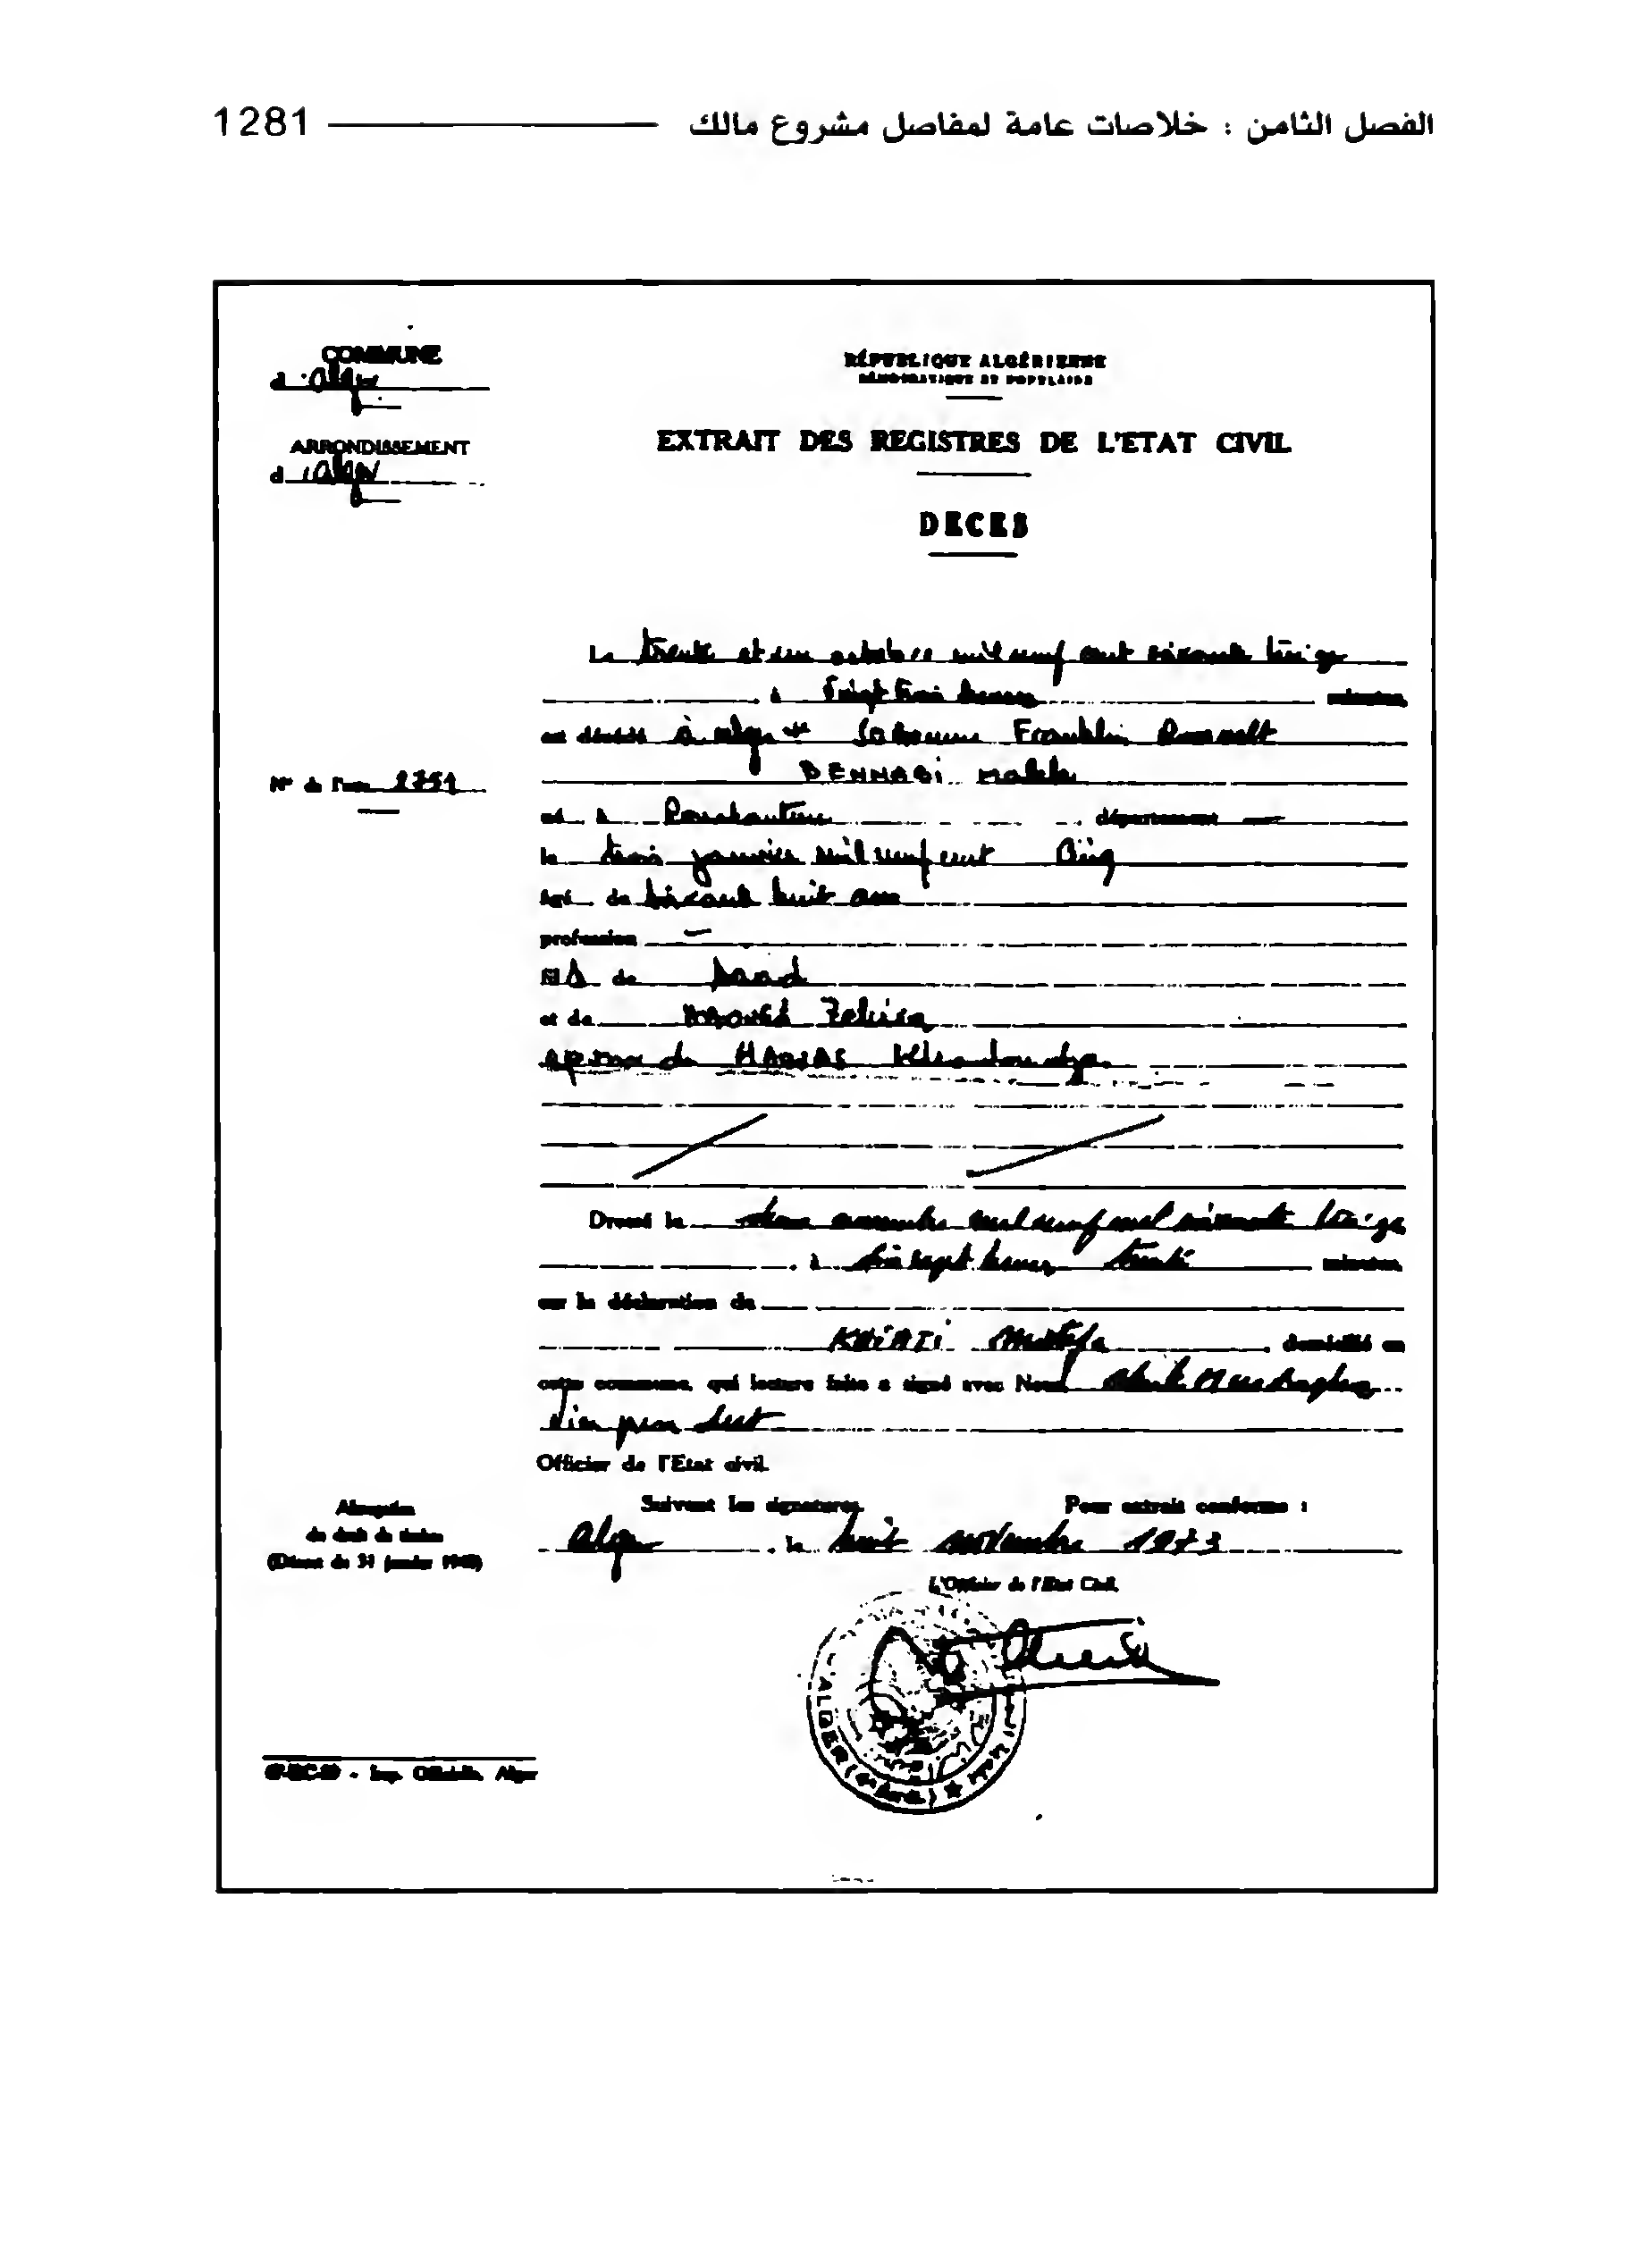 الفصل الثامن : خلاصات عامة لمفاصل مشروع مالك 1281
COMMUNE
d'Alger
ARRONDISSEMENT
d'Alger
RÉPUBLIQUE ALGÉRIENNE
DÉMOCRATIQUE ET POPULAIRE
EXTRAIT DES REGISTRES DE L'ETAT CIVIL
DECES
Le trente et un octobre mil neuf cent soixante treize
à vingt trois heures minutes
est décédé à Alger Franklin Roosevelt
BENNABI Malek
N° de l'acte 2751
né à Constantine département
le trois janvier mil neuf cent cinq
âgé de soixante huit ans
profession
fils de
et de Zehira
époux de
Dressé le novembre mil neuf cent soixante treize
à dix sept heures trente minutes
sur la déclaration de
KHIATI Mostefa domicilié en
cette commune, qui lecture faite a signé avec Nous
Officier de l'Etat civil.
Suivent les signatures. Pour extrait conforme :
Alger le huit novembre 1973
L'Officier de l'Etat Civil,
du droit de timbre
(Décret du 31 janvier
Imp. Officielle, Alger
ALGER